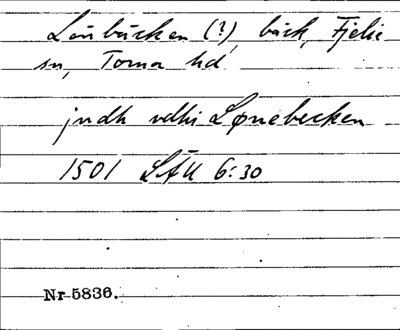 Lönbäcken (?) bäck, Fjelie
sn, Torna hd
jndh vdhi Lønebecken
1501 LÄU 6:30
Nr 5836.